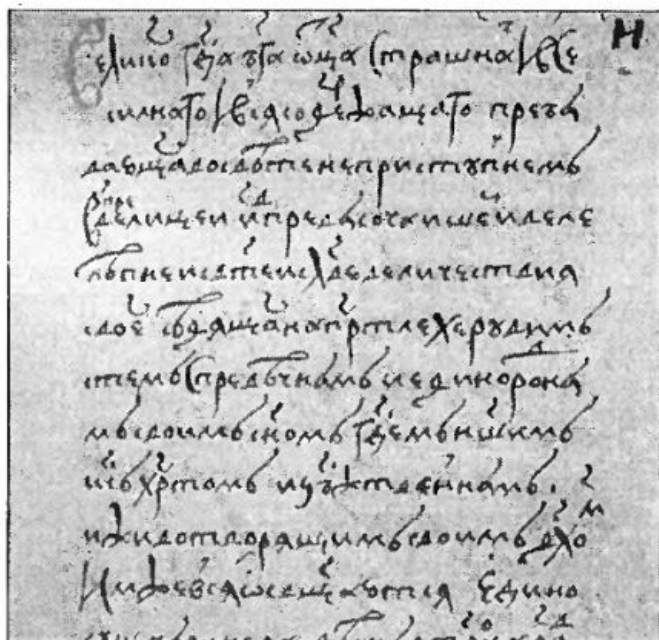 Н
Великого гда бга ѿца страшнаго и все
силнаго и вся содержащаго пребы
вающа во свѣте неприступнемъ
в превелицеи и превысочаишеи и веле
лѣпнеи и стеи славе величествия
своего сѣдяща на прстле херувимъ
стемъ с превѣчнымъ и единородны
мъ своимъ сномъ гдемъ ншимъ
исъ хрстомъ и с бжственнымъ
и животворящимъ своимъ дхом
имже вся ѡсвящаются едино